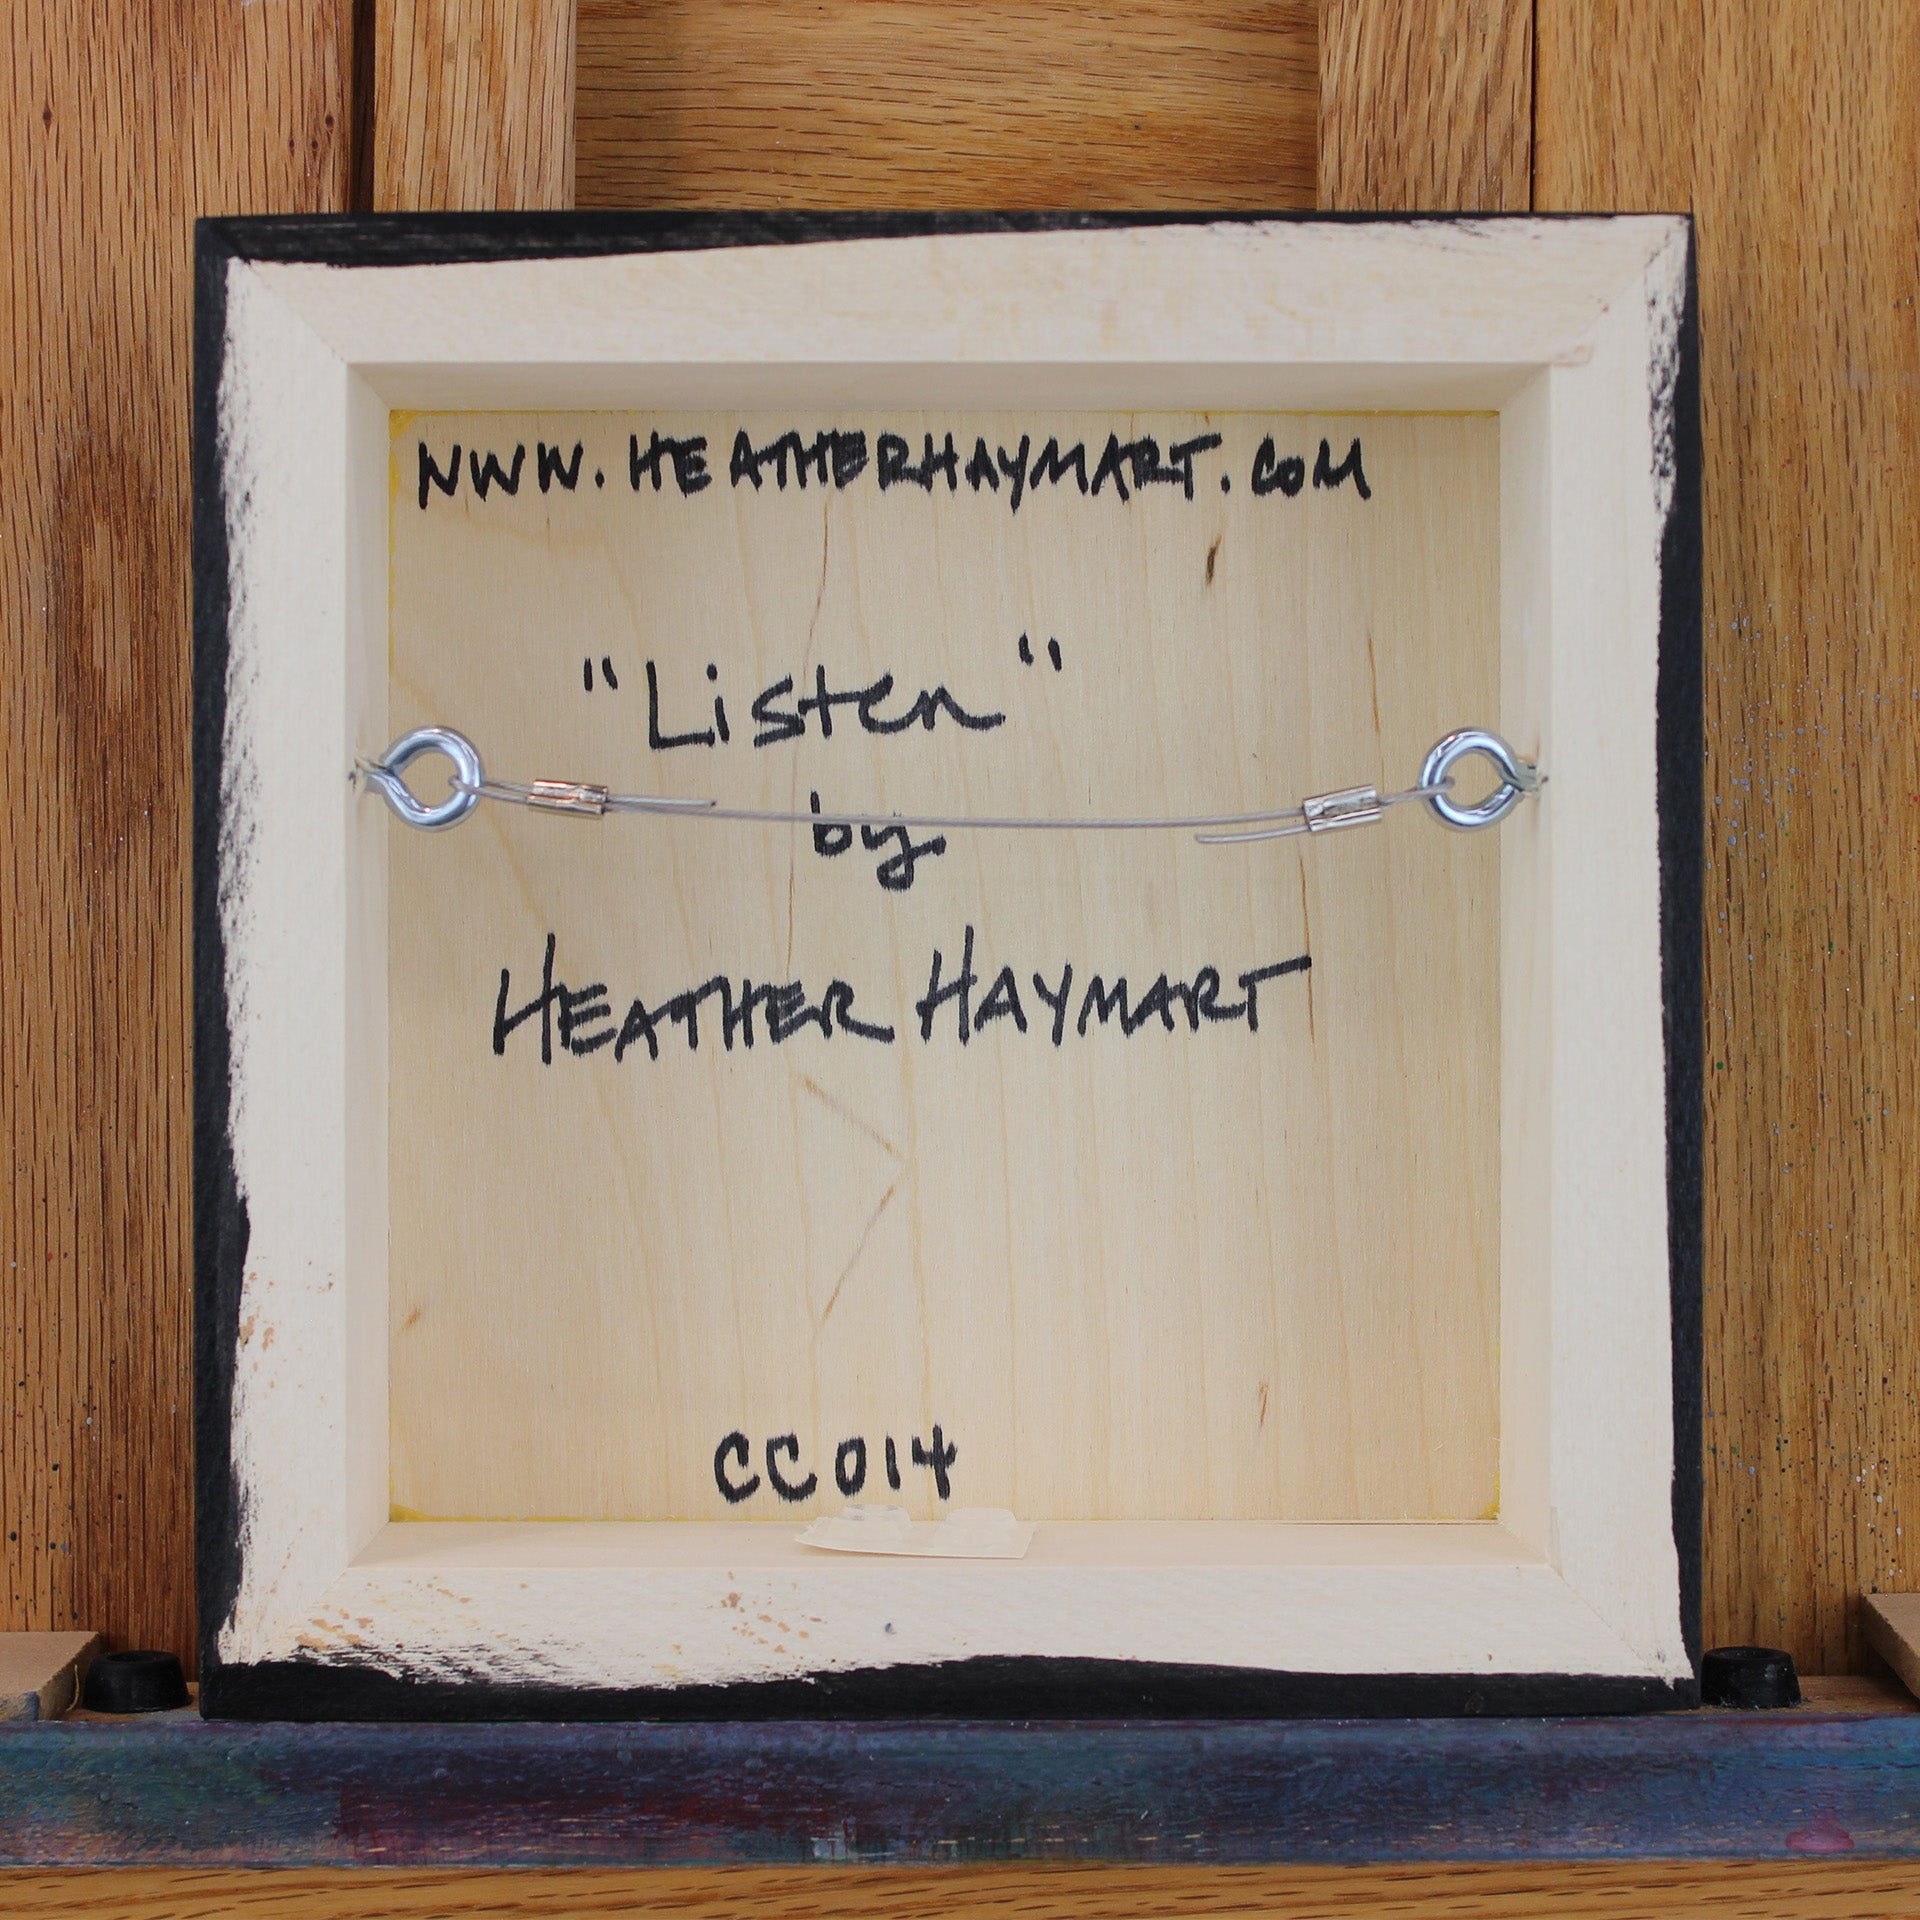 WWW.HEATHERHAYMART.COM
"Listen"
by
HEATHER HAYMART
CC014